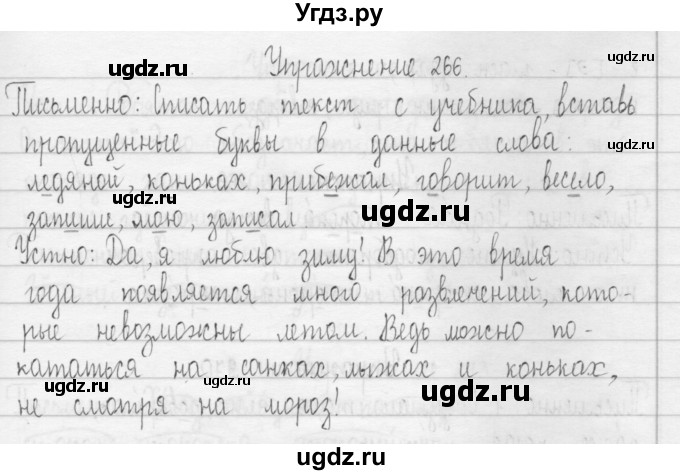 Угдз.ру
Упражнение 266.
ugdz.ru ugdz.ru ugdz.ru
Письменно: Списать текст с учебника, вставь
пропущенные буквы в данные слова:
ugdz.ru ugdz.ru
ледяной, коньках прибежал, говорит, весело,
запише, мою, записал.
ugdz.ru
Устно: Да, я люблю зиму! В это время
ugdz.ru ugdz.ru
года появляется много развлечений, кото-
рые невозможны летом. Ведь можно по-
кататься на санках, лыжах и коньках,
ugdz.ru ugdz.ru ugdz.ru
не смотря на мороз!
Угдз.ру